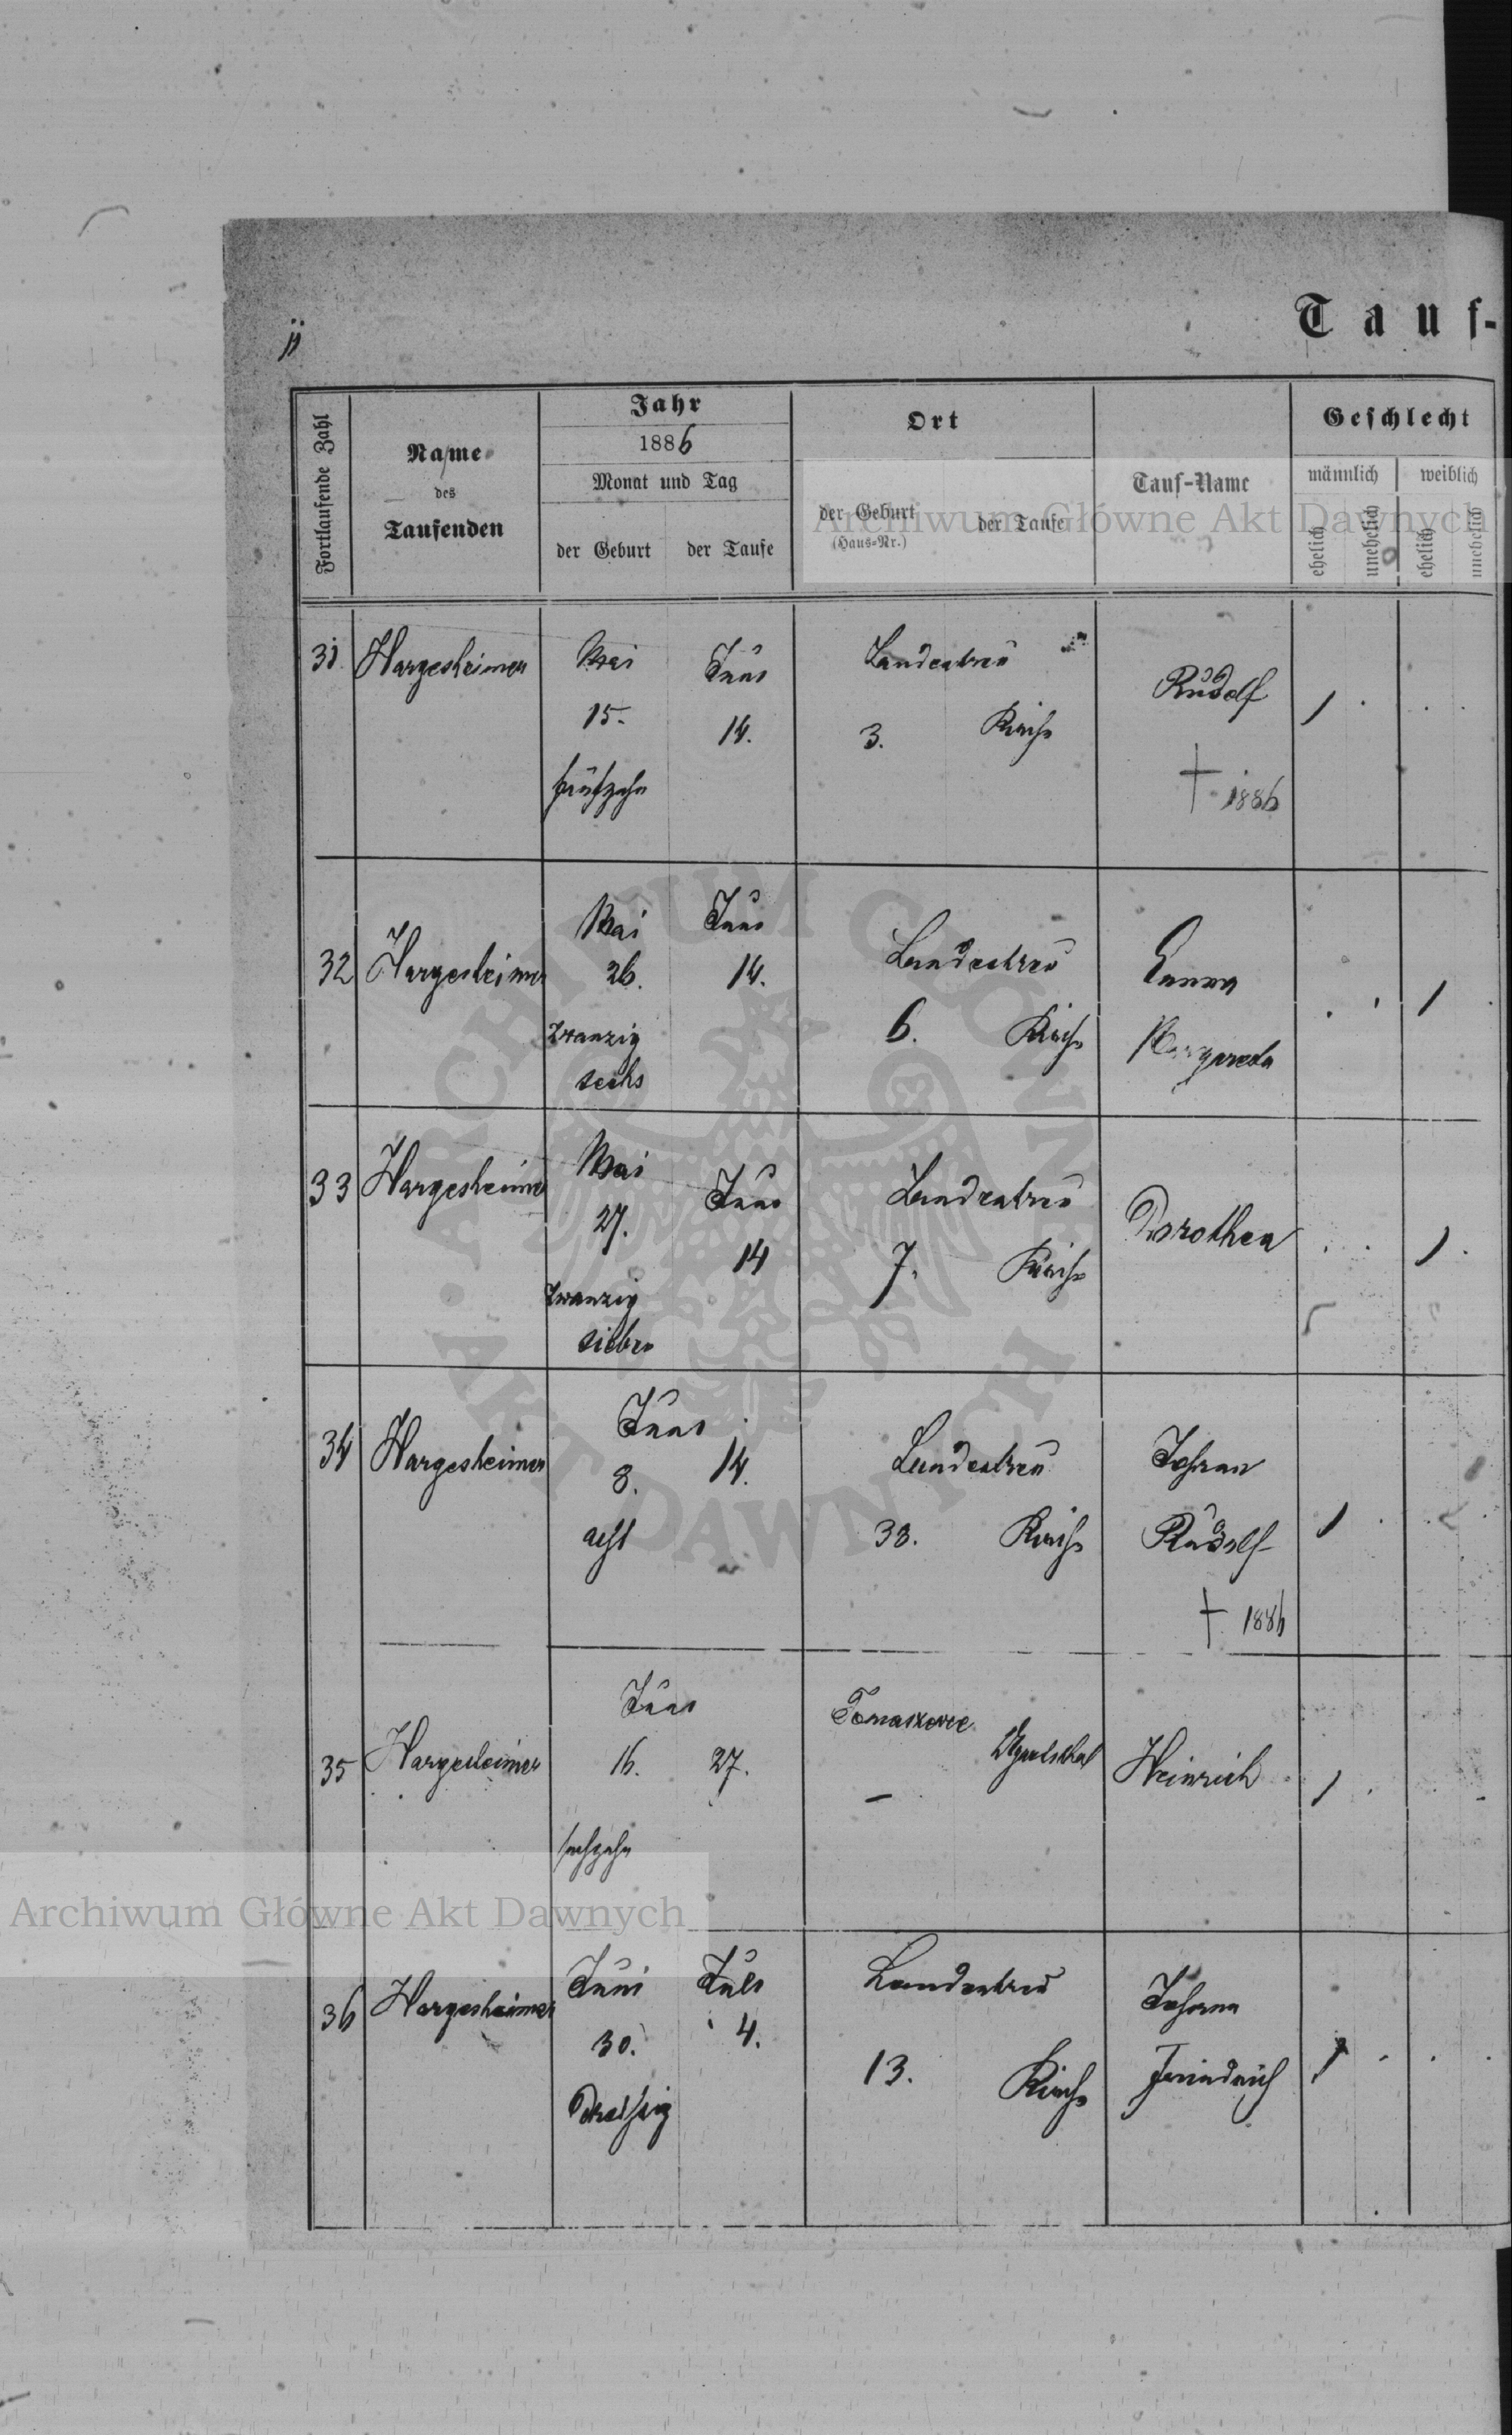 Tauf-
Fortlaufende Zahl
Name
des
Taufenden
Jahr
1886
Monat und Tag
der Geburt
der Taufe
Ort
der Geburt
(Haus-Nr.)
der Taufe
Tauf-Name
Geschlecht
männlich
weiblich
ehelich
unehelich
ehelich
unehelich
Archiwum Główne Akt Dawnych
31 Hargesheimer
Mai
15.
fünfzehn
Juni
14.
Landestreu
3. Kirche
Rudolf
† 1886
1
32 Hargesheimer
Mai
26.
zwanzig
sechs
Juni
14.
Landestreu
6. Kirche
Emma
Margareta
1
33 Hargesheimer
Mai
27.
zwanzig
sieben
Juni
14
Landestreu
7. Kirche
Dorothea
1
34 Hargesheimer
Juni
8. 14.
acht
Landestreu
33. Kirche
Johann
Rudolf
† 1886
1
35 Hargesheimer
Juni
16. 27.
sechzehn
Tomaskowce
–
Ugartsthal
Heinrich
1
36 Hargesheimer
Juni
30.
Dreißig
Juli
4.
Landestreu
13. Kirche
Johann
Friedrich
1
ARCHIWUM GŁÓWNE
AKT DAWNYCH
Archiwum Główne Akt Dawnych